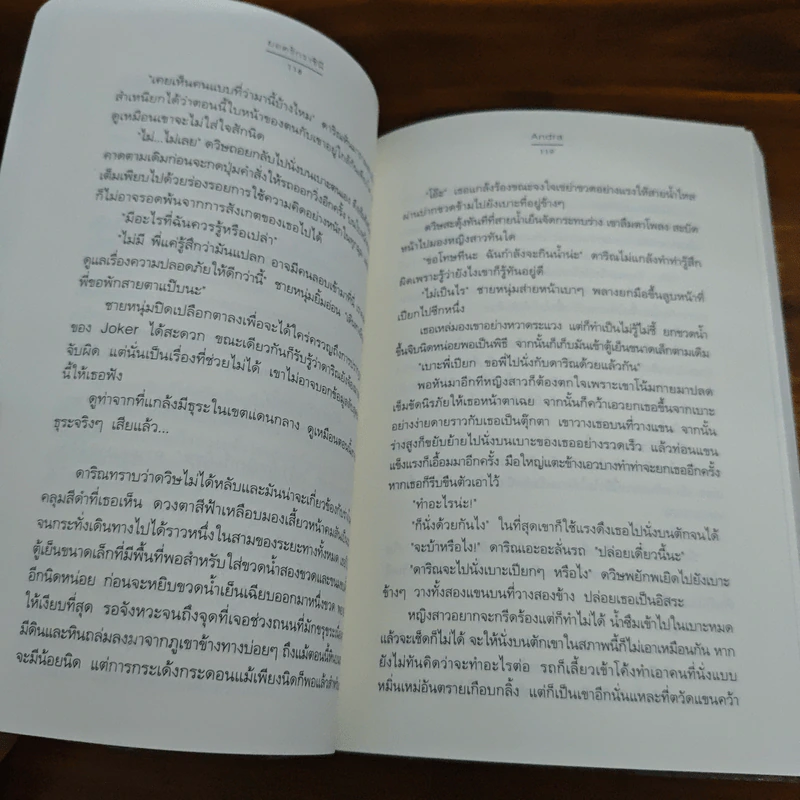 "เคยเห็นคนแบบที่ว่ามานี้บ้างไหม"
สำเหนียกได้ว่าตอนนี้ใบหน้าของตนกับเขาอยู่
ดูเหมือนเขาจะไม่ใส่ใจสักนิด
"ไม่...ไม่เลย" ดวิษถอยกลับไปนั่งบนเบาะตนเอง
คาดตามเดิมก่อนจะกดปุ่มคำสั่งให้รถออกวิ่งอีกครั้ง
เต็มเพียบไปด้วยร่องรอยการใช้ความคิดอย่างหนัก
ก็ไม่อาจรอดพ้นจากการสังเกตของเธอไปได้
"มีอะไรที่ฉันควรรู้หรือเปล่า"
"ไม่มี พี่แค่รู้สึกว่ามันแปลก อาจมีคนลอบเข้ามาที่นี่
ดูแลเรื่องความปลอดภัยให้ดีกว่านี้" ชายหนุ่มยิ้มอ่อน
พี่ขอพักสายตาแป๊บนะ"
ชายหนุ่มปิดเปลือกตาลงเพื่อจะได้ใคร่ครวญถึงการ
ของ Joker ได้สะดวก ขณะเดียวกันก็รับรู้ว่าดาริณยัง
จับผิด แต่นั่นเป็นเรื่องที่ช่วยไม่ได้ เขาไม่อาจบอกข้อมูล
นี้ให้เธอฟัง
ดูท่าจากที่แกล้งมีธุระในเขตแดนกลาง ดูเหมือนตอนนี้
ธุระจริงๆ เสียแล้ว...
ดาริณทราบว่าดวิษไม่ได้หลับและมันน่าจะเกี่ยวข้องกับ
คลุมสีดำที่เธอเห็น ดวงตาสีฟ้าเหลือบมองเสี้ยวหน้าคมสัน
จนกระทั่งเดินทางไปได้ราวหนึ่งในสามของระยะทางทั้งหมด
ตู้เย็นขนาดเล็กที่มีพื้นที่พอสำหรับใส่ขวดน้ำสองขวดและ
อีกนิดหน่อย ก่อนจะหยิบขวดน้ำเย็นเฉียบออกมาหนึ่งขวด
ให้เงียบที่สุด รอจังหวะจนถึงจุดที่เจอช่วงถนนที่มักขรุขระ
มีดินและหินถล่มลงมาจากภูเขาข้างทางบ่อยๆ ถึงแม้ตอนนี้
จะมีน้อยนิด แต่การกระเด้งกระดอนแม้เพียงนิดก็พอแล้วสำหรับ
Andra
"โอ๊ะ" เธอแกล้งร้องขณะจงใจเขย่าขวดอย่างแรงให้สายน้ำไหล
ผ่านปากขวดข้ามไปยังเบาะที่อยู่ข้างๆ
ดวิษสะดุ้งทันทีที่สายน้ำเย็นจัดกระทบร่าง เขาลืมตาโพลง สะบัด
หน้าไปมองหญิงสาวทันใด
"ขอโทษทีนะ ฉันกำลังจะกินน้ำน่ะ" ดาริณไม่แกล้งทำทำรู้สึก
ผิดเพราะรู้ว่ายังไงเขาก็รู้ทันอยู่ดี
"ไม่เป็นไร" ชายหนุ่มส่ายหน้าเบาๆ พลางยกมือขึ้นลูบหน้าที่
เปียกไปซีกหนึ่ง
เธอเหล่มองเขาอย่างหวาดระแวง แต่ก็ทำเป็นไม่รู้ไม่ชี้ ยกขวดน้ำ
ขึ้นจิบนิดหน่อยพอเป็นพิธี จากนั้นก็เก็บมันเข้าตู้เย็นขนาดเล็กตามเดิม
"เบาะพี่เปียก ขอพี่ไปนั่งกับดาริณด้วยแล้วกัน"
พอหันมาอีกทีหญิงสาวก็ต้องตกใจเพราะเขาโน้มกายมาปลด
เข็มขัดนิรภัยให้เธอหน้าตาเฉย จากนั้นก็คว้าเอวยกเธอขึ้นจากเบาะ
อย่างง่ายดายราวกับเธอเป็นตุ๊กตา เขาวางเธอบนที่วางแขน จากนั้น
ร่างสูงก็ขยับย้ายไปนั่งบนเบาะของเธออย่างรวดเร็ว แล้วท่อนแขน
แข็งแรงก็เอื้อมมาอีกครั้ง มือใหญ่แตะข้างเอวบางทำท่าจะยกเธออีกครั้ง
หากเธอก็รีบขืนตัวเอาไว้
"ทำอะไรน่ะ!"
"ก็นั่งด้วยกันไง" ในที่สุดเขาก็ใช้แรงดึงเธอไปนั่งบนตักจนได้
"จะบ้าหรือไง!" ดาริณเอะอะลั่นรถ "ปล่อยเดี๋ยวนี้นะ"
"ดาริณจะไปนั่งเบาะเปียกๆ หรือไง" ดวิษพยักพเยิดไปยังเบาะ
ข้างๆ วางทั้งสองแขนบนที่วางสองข้าง ปล่อยเธอเป็นอิสระ
หญิงสาวอยากจะกรีดร้องแต่ก็ทำไม่ได้ น้ำซึมเข้าไปในเบาะหมด
แล้วจะเช็ดก็ไม่ได้ จะให้นั่งบนตักเขาในสภาพนี้ก็ไม่เอาเหมือนกัน หาก
ยังไม่ทันคิดว่าจะทำอะไรต่อ รถก็เลี้ยวเข้าโค้งทำเอาคนที่นั่งแบบ
หมิ่นเหม่อันตรายเกือบกลิ้ง แต่ก็เป็นเขาอีกนั่นแหละที่ตวัดแขนคว้า